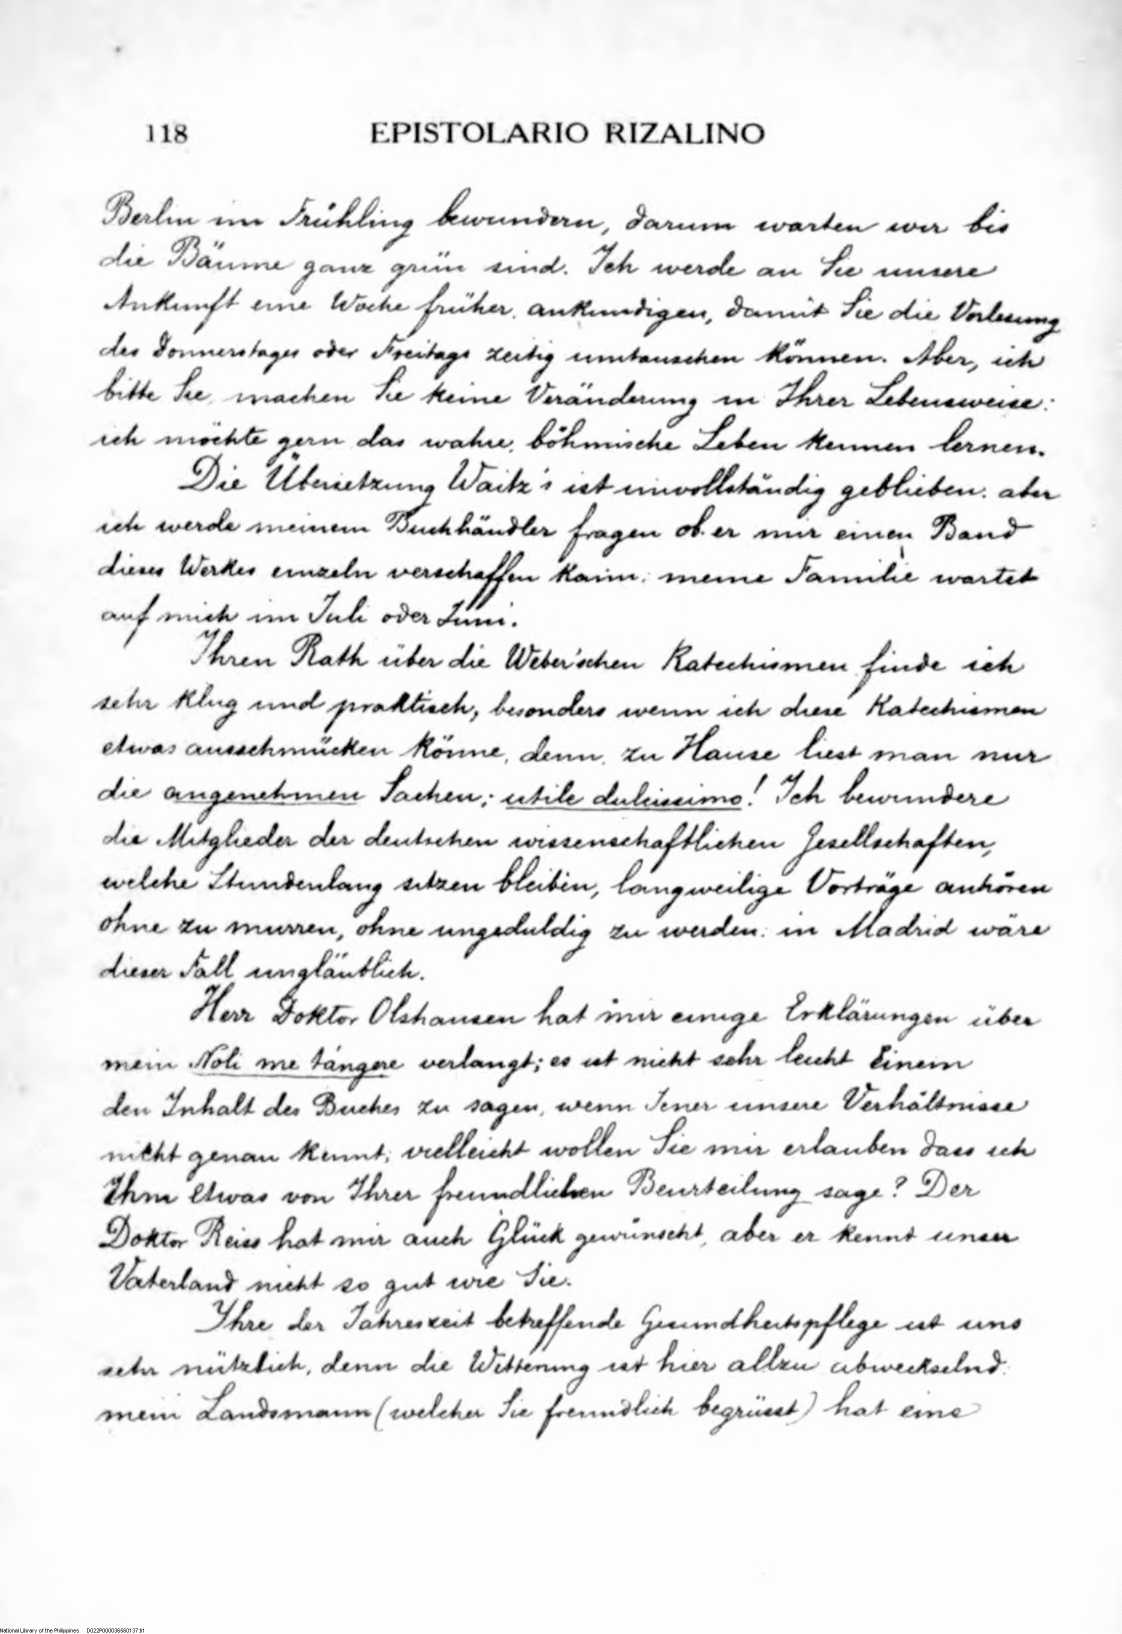 118 EPISTOLARIO RIZALINO
Berlin im Frühling bewundern, darum warten wir bis
die Bäume ganz grün sind. Ich werde an Sie unsere
Ankunft eine Woche früher ankundigen, damit Sie die Vorlesung
des Donnerstages oder Freitags zeitig umtauschen können. Aber, ich
bitte Sie, machen Sie keine Veränderung in Ihrer Lebensweise:
ich möchte gern das wahre, böhmische Leben kennen lernen.
Die Übersetzung Waitz's ist unvollständig geblieben. aber
ich werde meinem Buchhändler fragen ob er mir einen Band
dieses Werkes einzeln verschaffen kann; meine Familie wartet
auf mich im Juli oder Juni.
Ihren Rath über die Weber'schen Katechismen finde ich
sehr klug und praktisch, besonders wenn ich diese Katechismen
etwas ausschmücken könne, denn, zu Hause liest man nur
die angenehmen Sachen; utile dulcissimo! Ich bewundere
die Mitglieder der deutschen wissenschaftlichen Gesellschaften,
welche Stundenlang sitzen bleiben, langweilige Vorträge anhören
ohne zu murren, ohne ungeduldig zu werden: in Madrid wäre
dieser Fall ungläublich.
Herr Doktor Olshausen hat mir einige Erklärungen über
mein Noli me tángere verlangt; es ist nicht sehr leicht Einem
den Inhalt des Buches zu sagen, wenn Jener unsere Verhältnisse
nicht genau kennt; vielleicht wollen Sie mir erlauben dass ich
Ihm etwas von Ihrer freundlichen Beurteilung sage? Der
Doktor Reiss hat mir auch Glück gewünscht, aber er kennt unser
Vaterland nicht so gut wie Sie.
Ihre der Jahreszeit betreffende Gesundheitspflege ist uns
sehr nützlich, denn die Witterung ist hier allzu abweckselnd:
mein Landsmann (welcher Sie freundlich begrüsst) hat eine
National Library of the Philippines